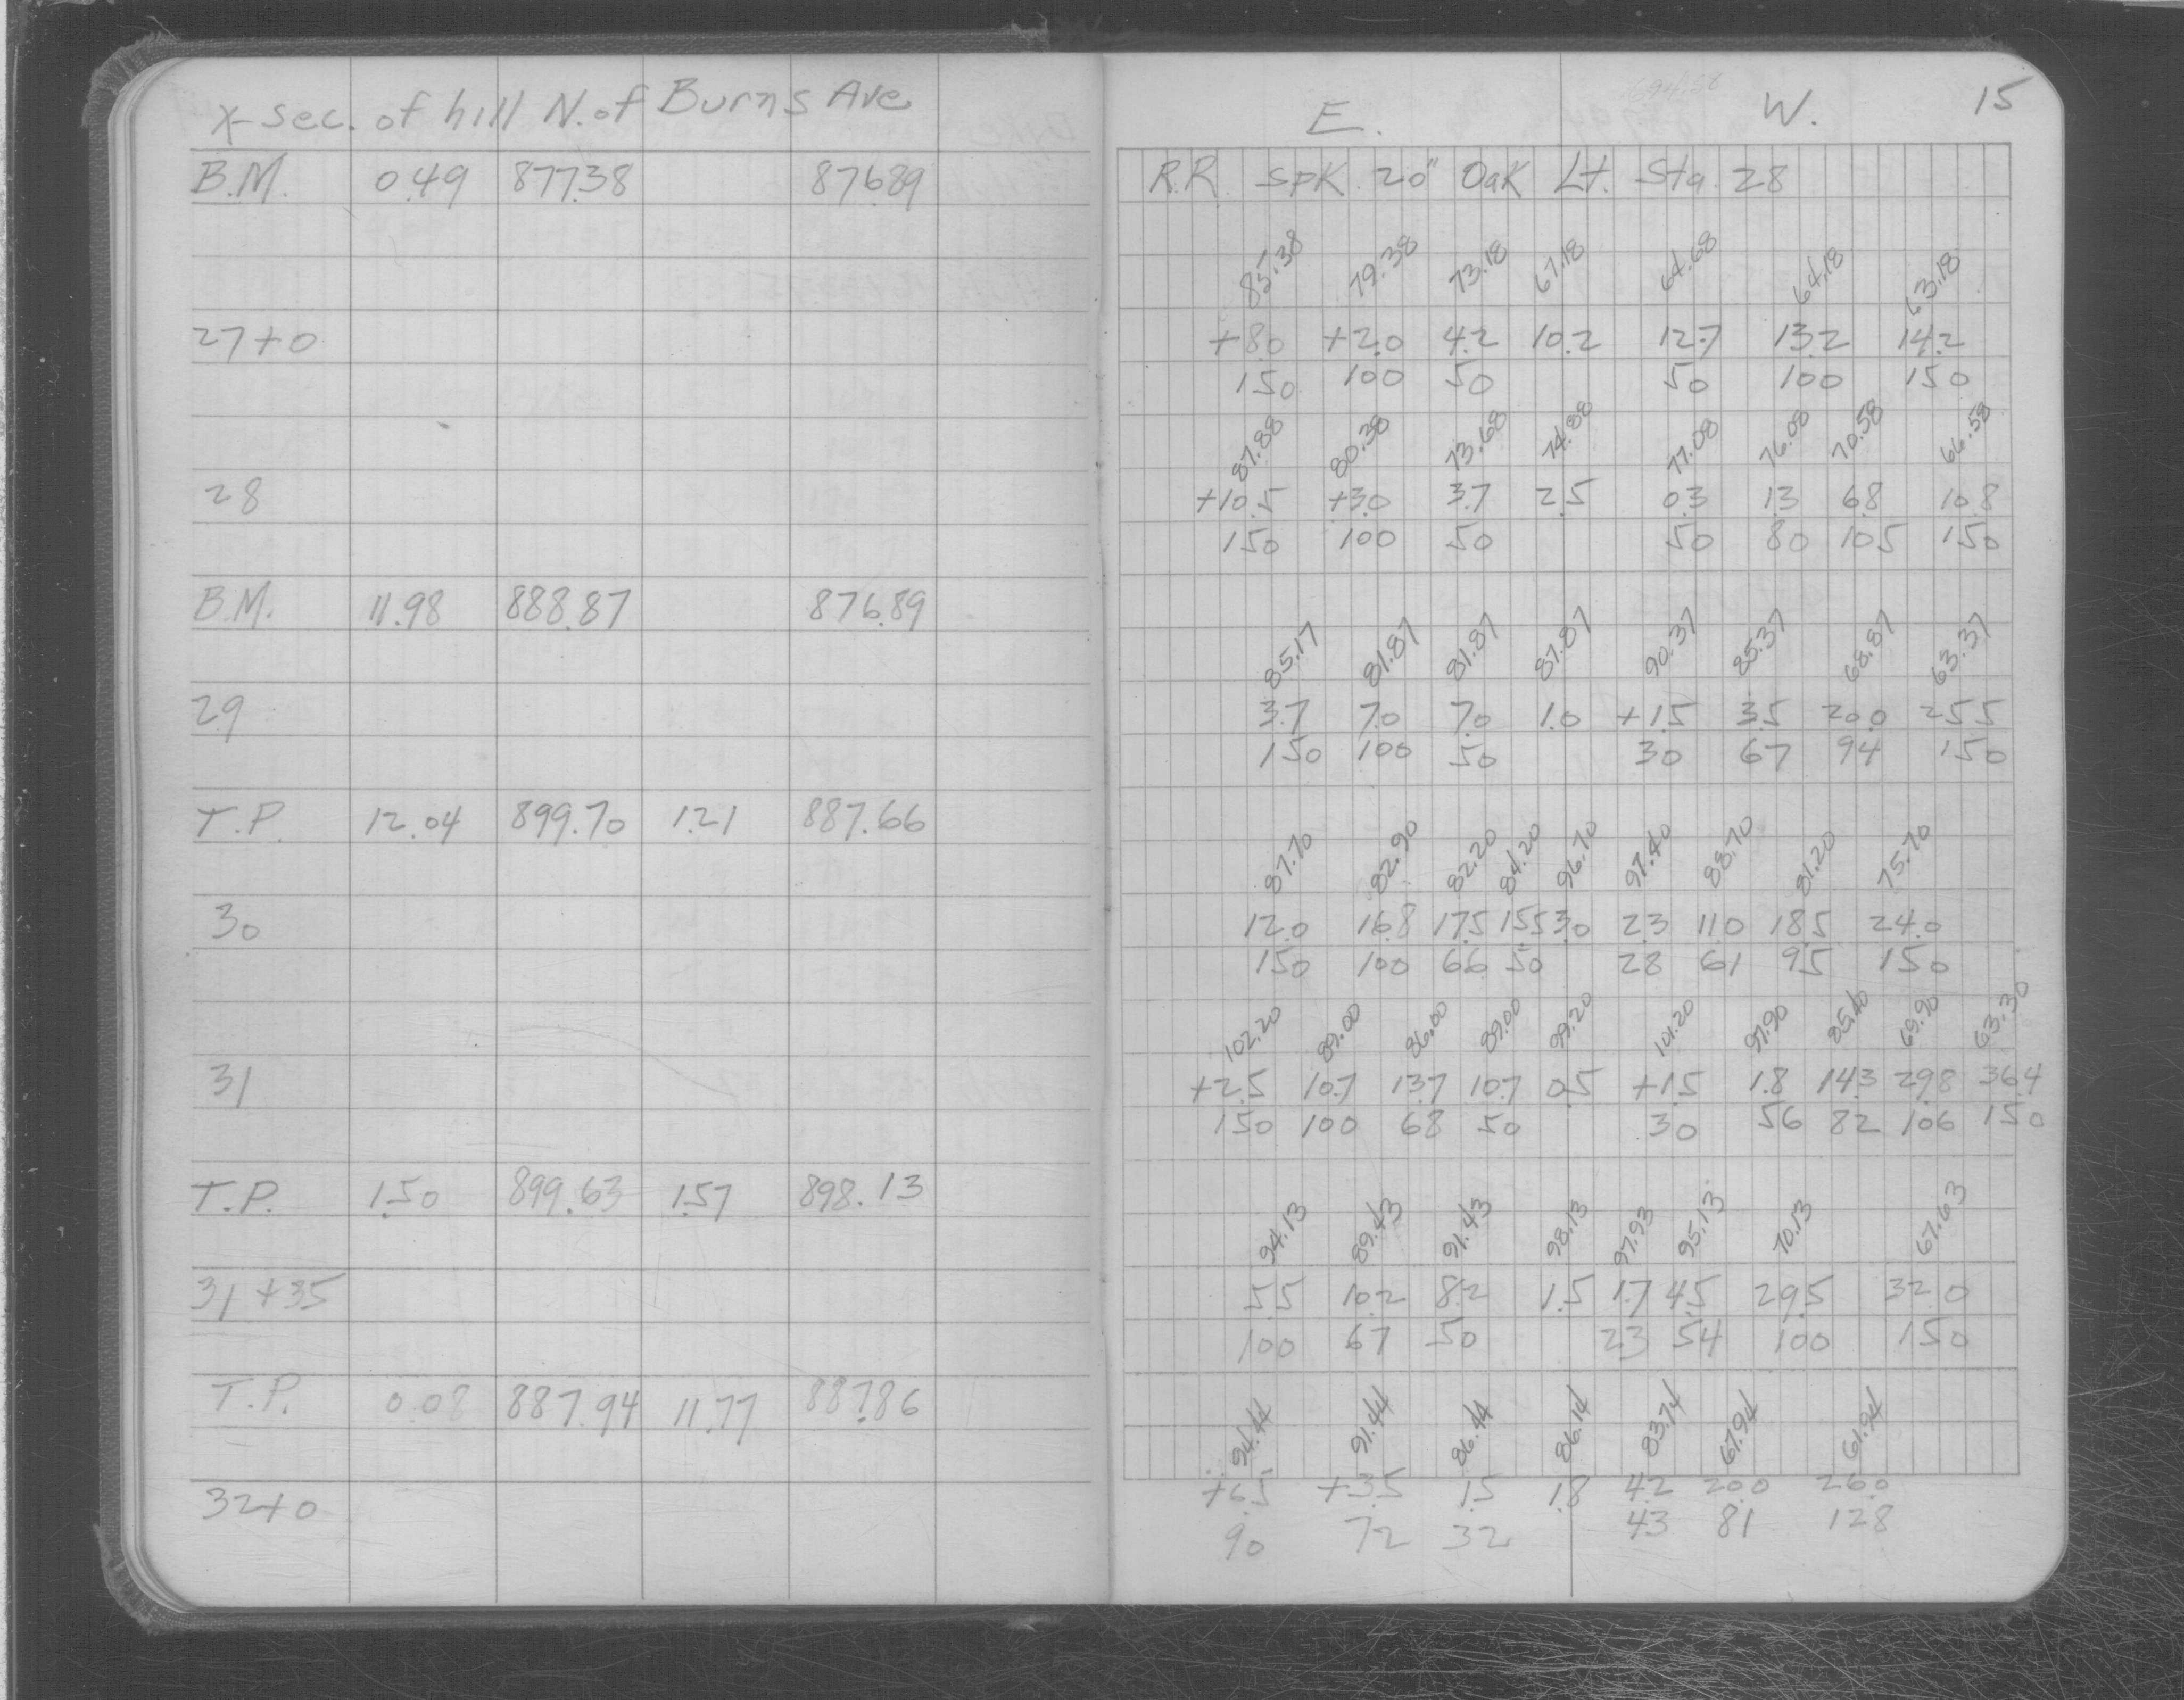 X-sec. of hill N. of Burns Ave
E. W. 15
B.M. 0.49 877.38 876.89 R.R. Spk. 20" Oak Lt. Sta. 28
85.38 79.38 73.18 67.18 64.68 64.18 63.18
27+0 +8.0 +2.0 4.2 10.2 12.7 13.2 14.2
150 100 50 50 100 150
87.88 80.38 73.68 74.88 77.08 76.08 70.58 66.58
28 +10.5 +3.0 3.7 2.5 0.3 1.3 6.8 10.8
150 100 50 50 80 105 150
B.M. 11.98 888.87 876.89
85.17 81.87 81.87 87.87 90.37 85.37 68.87 63.37
29 3.7 7.0 7.0 1.0 +1.5 3.5 20.0 25.5
150 100 50 30 67 94 150
T.P. 12.04 899.70 1.21 887.66
87.70 82.90 82.20 84.20 96.70 97.40 88.70 81.20 75.70
30 12.0 16.8 17.5 15.5 3.0 2.3 11.0 18.5 24.0
150 100 66 50 28 61 95 150
102.20 89.00 86.00 89.00 99.20 101.20 97.90 85.40 69.90 63.30
31 +2.5 10.7 13.7 10.7 0.5 +1.5 1.8 14.3 29.8 36.4
150 100 68 50 30 56 82 106 150
T.P. 1.50 899.63 1.57 898.13
94.13 89.43 91.43 98.13 97.93 95.13 70.13 67.63
31+35 5.5 10.2 8.2 1.5 1.7 4.5 29.5 32.0
100 67 50 23 54 100 150
T.P. 0.08 887.94 11.77 887.86
94.44 91.44 86.44 86.14 83.74 67.94 61.94
32+0 +6.5 +3.5 1.5 1.8 4.2 20.0 26.0
90 72 32 43 81 128